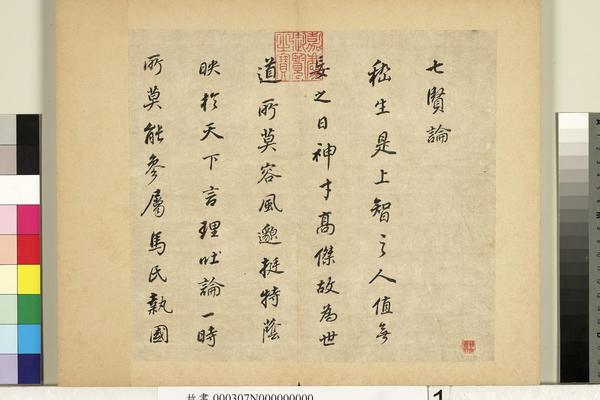 七賢論
嵇生是上智之人值無
妄之日神才高傑故為世
道所莫容風邈挺特蔭
映於天下言理吐論一時
所莫能參屬馬氏執國
嘉慶御覽之寶
故書 000307N000000000
1